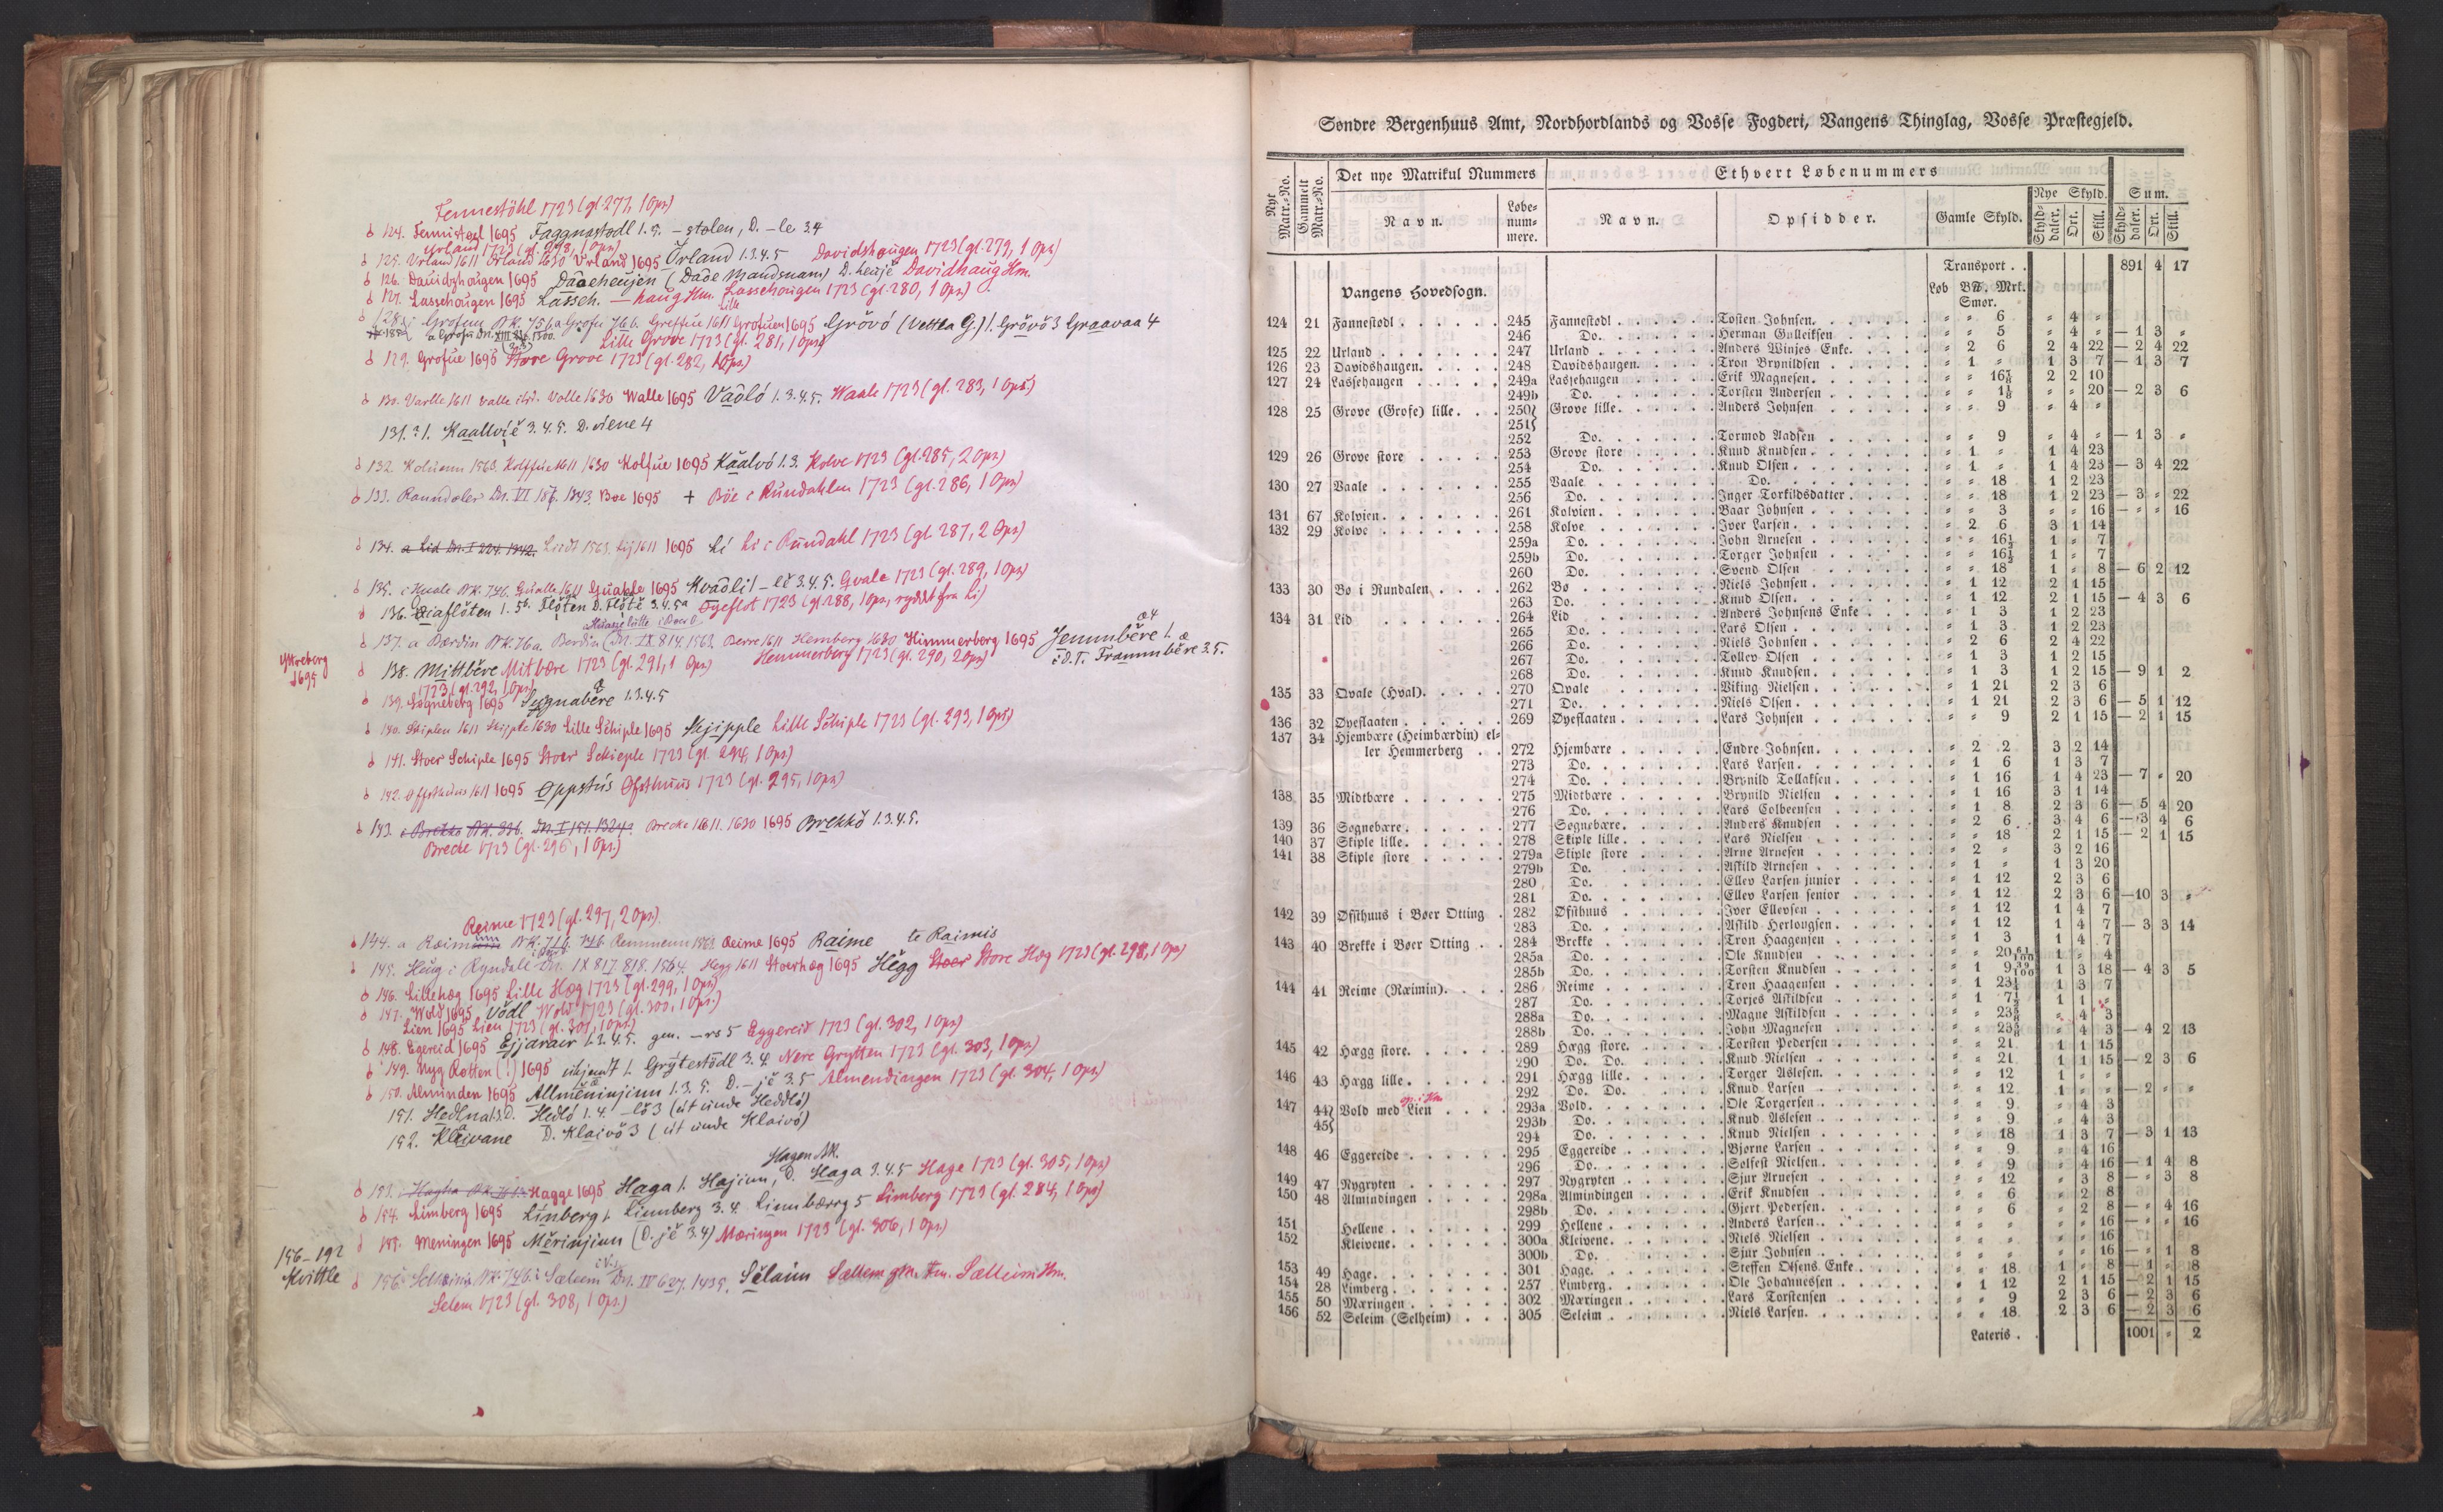 Fennestöhl 1723 (gl. 277, 1 Ops.)
124. Fennistoel 1695 Faggnastodl 1.5. – stolen, D. – le 3.4
Urland 1723 (gl. 278, 1 Ops.)
125. Urland 1611 Ørland 1630 Urland 1695 Örland 1.3.4.5 Davidshougen 1723 (gl. 279, 1 Ops.)
126. Dauidzhougen 1695 (Dade Mandsnavn) D. heujé Davidhaug Hm.
127. Lassehougen 1695 Lasseh. – haug Hm. Lassehougen 1723 (gl. 280, 1 Ops.)
128. i Grofum BK. 75b. a Grofu 76b. Greffue 1611 Lille Grofuen 1695 Grövó (Vettla G.) 1. Grövö 3 Graavaa 4
Lille Grove 1723 (gl. 281, 1 Ops.)
129. Grofue 1695 Store Grove 1723 (gl. 282, 1 Ops.)
130. Varlle 1611 Valle ibid. Volle 1630 Walle 1695 Vaoló 1.3.4.5. Waale 1723 (gl. 283, 1 Ops.)
131. ? 1. Kaallvië 3.4.5. D. viene 4
132. Koluenn 1563. Kolffue 1611 1630 Kolfue 1695 Kaalvó 1.3. Kolve 1723 (gl. 285, 2 Ops.)
133. Raundaler Dn. VI 187. 1343. Boe 1695 + Böe i Rundahlen 1723 (gl. 286, 1 Ops.)
134. a Lid Dn. I 224. 1342. Liidt 1563. Lij 1611 1695 Li Li i Rundahl 1723 (gl. 287, 2 Ops.)
135. i Huale BK. 74b. Gualle 1611 Guahle 1695 Kvaðli 1 – lë 3.4.5. Gvale 1723 (gl. 289, 1 Ops.)
136. Øiaflöten 1. 5b. Flöten D. Flötë 3.4.5a Øyeflot 1723 (gl. 288, 1 Ops, ryddet fra Li)
137. a Bærdin BK. 76a. Berdin (Dn. IX 814. 1563. Berre 1611 Hemberg 1630 Himmerberg 1695 Jemmbëre 1.
Hemmerberg 1723 (gl. 290, 2 Ops.) i D.T. Frammbëre 3.5.
Ytreberg 1695
138. Mittbëre Mitbære 1723 (gl. 291, 1 Ops)
1723 (gl. 292, 1 Ops)
139. Sogneberg 1695 Sygnabëre 1.3.4.5
140. Skiplen 1611 Skipple 1630 Lille Schiple 1695 Skjipple Lille Schiple 1723 (gl. 293, 1 Ops)
141. Stoer Schiple 1695 Stoer Schieple 1723 (gl. 294, 1 Ops)
142. Offsthuus 1611 1695 Oppstús Ofsthuus 1723 (gl. 295, 1 Ops)
143. i Brekko BK. 33b. Dn. I 151. 1324. Brecke 1611. 1630 1695 Brekkö 1.3.4.5.
Brecke 1723 (gl. 296, 1 Ops.)
Reime 1723 (gl. 297, 2 Ops.)
144. a Ræimin BK. 74b. 76b Remmenn 1563. Reime 1695 Raime te Raimis
145. Heug i Ryndall Dn. IX 817 818. 1564. Hegg 1611 Stoerhæg 1695 Hëgg Stoer Store Hæg 1723 (gl. 298, 1 Ops)
146. Lillehæg 1695 Lille Hæg 1723 (gl. 299, 1 Ops)
147. Wold 1695 Vödl Wold 1723 (gl. 300, 1 Ops.)
Lien 1695 Lien 1723 (gl. 301, 1 Ops.)
148. Egereid 1695 Ejjarair 1.3.4.5. gen. – rs 5 Eggereid 1723 (gl. 302, 1 Ops)
149. Nyg Røtten (!) 1695 ukjendt 1. Grÿtestödl 3.4 Nere Grytten 1723 (gl. 303, 1 Ops)
150. Alminden 1695 Allmenninjinn 1.3.5. D. – jë 3.5 Almendingen 1723 (gl. 304, 1 Ops)
151. Hedlna 1.3. D. Hedló 1.4. – lö 3 (út unde Heddló)
152. Kleivane D. Klaivö 3 (út unde Klaivó)
Hagen AK.
153. i Hagha Hagge 1695 Haga 1. Hajinn, D. Haga 3.4.5 Hage 1723 (gl. 305, 1 Ops)
154. Limberg 1695 Linberg 1. Linnberg 3.4 Linnbærrg 5 Limberg 1723 (gl. 284, 1 Ops)
155. Meningen 1695 Mërinjinn (D. jë 3.4) Mæringen 1723 (gl. 306, 1 Ops)
156–192 Kvittle
156. i Selheimi BK. 74b. i Sælæim Dn. IV 627. 1435. Sëlaim Sællem gm. Hm. Sælleim Hm.
Selem 1723 (gl. 308, 1 Ops.)
Søndre Bergenhuus Amt, Nordhordlands og Vosse Fogderi, Vangens Thinglag, Vosse Præstegjeld.
Nyt Matr.-No. Gammelt Matr.-No. Det nye Matrikul Nummers Ethvert Løbenummers
Navn. Løbe-nummere. Navn. Opsidder. Gamle Skyld. Nye Skyld. Sum.
Skylddaler. Ort. Skill. Skylddaler. Ort. Skill.
Transport . . 891 4 17
Vangens Hovedsogn. Løb B℔. Mrk. Smør.
124 21 Fannestødl 245 Fannestødl Tosten Johnsen. " " 6 " 4 "
246 Do. Herman Gulleiksen " " 5 " 4 " – 1 3 "
125 22 Urland 247 Urland Anders Winjes Enke. " 2 6 2 4 22 – 2 4 22
126 23 Davidshaugen. 248 Davidshaugen. Tron Brynildsen " 1 " 1 3 7 – 1 3 7
127 24 Lassehaugen 249a Lassehaugen Erik Magnesen. " " 16⅞ 2 2 10
249b Do. Torsten Andersen " " 1⅛ " " 20 – 2 3 6
128 25 Grove (Grofe) lille. 250} Grove lille. Anders Johnsen " " 9 " 4 "
251}
252 Do. Tormod Aadsen " " 9 " 4 " – 1 3 "
129 26 Grove store 253 Grove store Knud Knudsen. " 1 " 1 4 23
254 Do. Knud Olsen. " 1 " 1 4 23 – 3 4 22
130 27 Vaale 255 Vaale Do. " " 18 1 2 23
256 Do. Inger Torkildsdatter " " 18 1 2 23 – 3 " 22
131 67 Kolvien. 261 Kolvien. Baar Johnsen " " 3 " " 16 – " " 16
132 29 Kolve 258 Kolve Iver Larsen. " 2 6 3 1 14
259a Do. John Arnesen " " 16½ 1 " 7
259b Do. Torger Johnsen " " 16½ 1 " 7
260 Do. Svend Olsen " " 18 1 " 8 – 6 2 12
133 30 Bø i Rundalen 262 Bø Niels Johnsen. " 1 12 2 1 15
263 Do. Knud Olsen. " 1 12 2 1 15 – 4 3 6
134 31 Lid 264 Lid Anders Johnsens Enke " 1 3 1 2 23
265 Do. Lars Olsen " 1 3 1 2 23
266 Do. Niels Johnsen " 2 6 2 4 22
267 Do. Tollev Olsen " 1 3 1 2 15
268 Do. Knud Knudsen. " 1 3 1 2 15 – 9 1 2
135 33 Qvale (Hval). 270 Qvale Viking Nielsen. " 1 21 2 3 6
271 Do. Niels Olsen. " 1 21 2 3 6 – 5 1 12
136 32 Øyeflaaten 269 Øyeflaaten. Lars Johnsen " " 9 2 1 15 – 2 1 15
137 34 Hjembære (Heimbærdin) el-
ler Hemmerberg 272 Hjembære Endre Johnsen. " 2 2 3 2 14
273 Do. Lars Larsen. " 1 6 1 3 7
274 Do. Brynild Tollaksen " 1 16 1 4 23 – 7 " 20
138 35 Midtbære 275 Midtbære Brynild Nielsen " 1 16 3 1 14
276 Do. Lars Colbeensen " 1 8 2 3 6 – 5 4 20
139 36 Sognebære. 277 Sognebære. Anders Knudsen " 2 6 3 4 6 – 3 4 6
140 37 Skiple lille. 278 Skiple lille. Lars Nielsen " " 18 2 1 15 – 2 1 15
141 38 Skiple store 279a Skiple store Arne Arnesen " 2 " 3 2 16
279b Do. Askild Arnesen " 1 " 1 3 20
280 Do. Ellev Larsen junior " 1 12 2 3 6
281 Do. Ellev Larsen senior " 1 12 2 3 6 – 10 3 "
142 39 Øfsthuus i Bøer Otting 282 Øfsthuus Iver Ellevsen " 1 12 1 4 7
283 Do. Askild Herlougsen " 1 12 1 4 7 – 3 3 14
143 40 Brekke i Bøer Otting 284 Brekke Tron Haagensen " 1 3 1 4 7
285a Do. Ole Knudsen " " 20 61/100 1 " 4
285b Do. Torsten Knudsen " 1 9 39/100 1 3 18 – 4 3 5
144 41 Reime (Ræimin). 286 Reime Tron Haagensen " 1 23¼ 1 3 7
287 Do. Torjes Askildsen " 1 7½ 1 1 "
288a Do. Magne Askildsen " " 23⅝ " 4 3
288b Do. John Magnesen " " 23⅝ " 4 3 – 4 2 13
145 42 Hægg store. 289 Hægg store. Torsten Pedersen " " 21 1 1 15
290 Do. Do. Knud Nielsen " " 21 1 1 15 – 2 3 6
146 43 Hægg lille. 291 Hægg lille. Torger Aslesen. " " 12 1 " "
292 Do. Do. Knud Larsen " " 12 1 " " – 2 " "
147 44} Vold med Lien 293a Vold. Ole Torgersen " " 9 " 4 3
45} 293b Do. Knud Aslesen " " 9 " 4 3
294 Do. Knud Nielsen " " 18 1 3 7 – 3 1 13
148 46 Eggereide 295 Eggereide Bjørne Larsen " " 9 " 4 16
296 Do. Solfest Nielsen. " " 9 " 4 16 – 1 4 8
149 47 Nygryten 297 Nygryten Sjur Arnesen " " 12 " 3 8 – " 3 8
150 48 Almindingen 298a Almindingen Erik Knudsen " " 6 " 2 8
298b Do. Gjert Pedersen. " " 6 " 2 8 – " 4 16
151 Hellene 299 Hellene Anders Larsen. " " " " " 16 – " " 16
152 Kleivene. 300a Kleivene. Niels Nielsen " " " " " 16
300b Do. Sjur Johnsen " " " " " 16 – " 1 8
153 49 Hage. 301 Hage. Steffen Olsens Enke " " 18 1 " 8 – 1 " 8
154 28 Limberg. 257 Limberg. Ole Johannessen " 1 12 2 1 15 – 2 1 15
155 50 Mæringen 302 Mæringen Lars Torstensen " " 9 2 3 6 – 2 3 6
156 52 Seleim (Selheim) 305 Seleim Niels Larsen. " " 18 2 3 6 – 2 3 6
Lateris . 1001 " 2